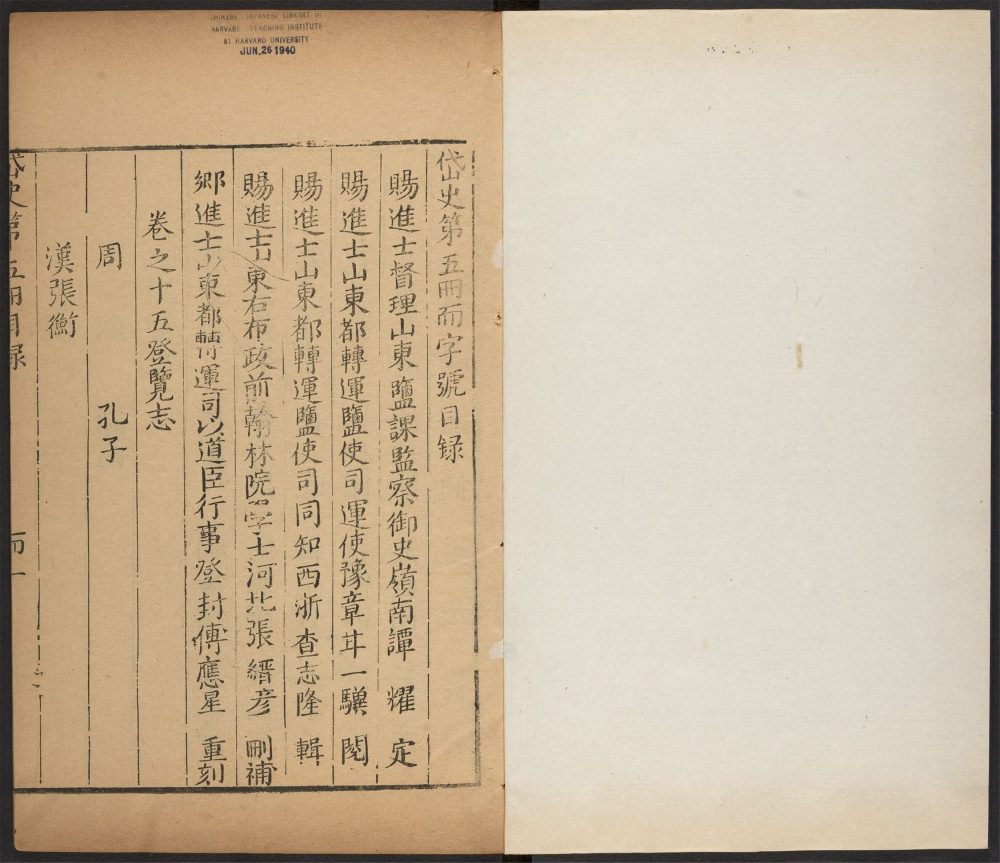 CHINESE - JAPANESE LIBRARY OF
HARVARD - YENCHING INSTITUTE
AT HARVARD UNIVERSITY
JUN 26 1940
岱史第五冊而字號目録
賜進士督理山東鹽課監察御史嶺南譚 耀 定
賜進士山東都轉運鹽使司運使豫章甘一驥 閱
賜進士山東都轉運鹽使司同知西浙查志隆 輯
賜進士山東右布政前翰林院學士河北張縉彦 刪補
鄉進士山東都轉運司以道臣行事登封傅應星 重刻
卷之十五登覽志
周 孔子
漢張衡
岱史第五冊目録 而一